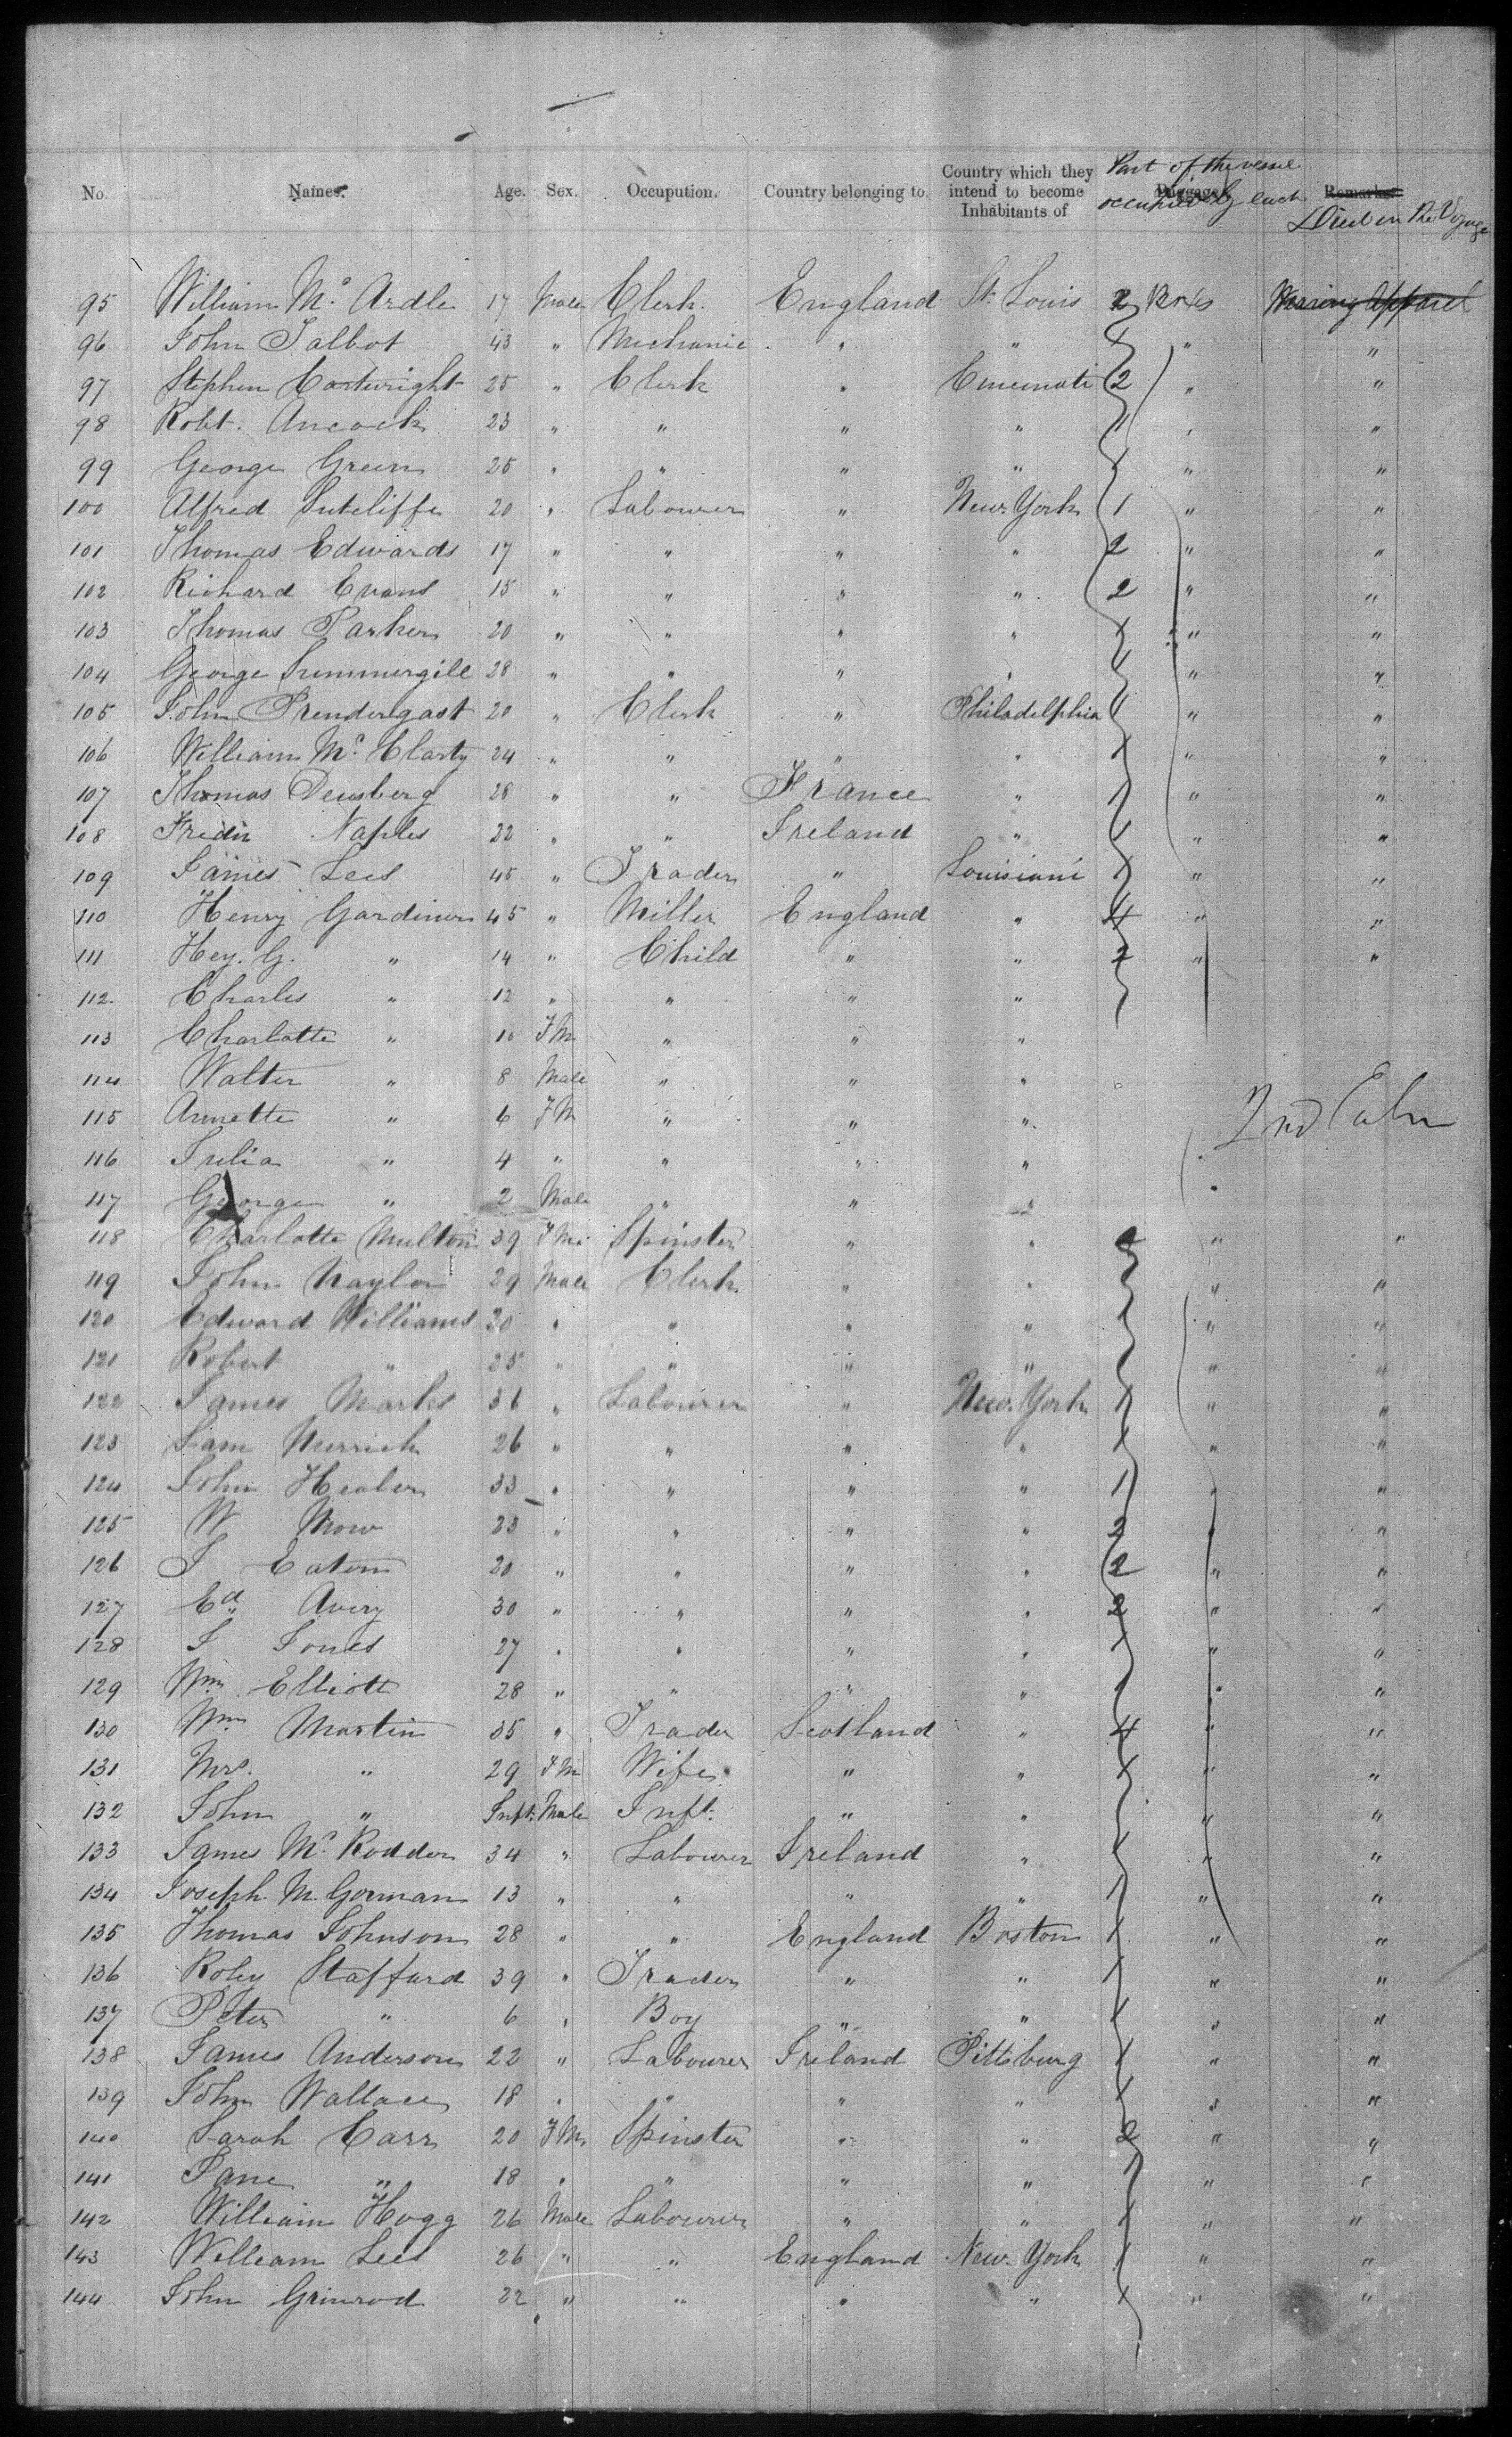 No. Names. Age. Sex. Occupution. Country belonging to. Country which they intend to become Inhabitants of Baggage Remarks
Part of the vessel occupied by each
Died on the Voyage
95 William Mc Ardle 17 Male Clerk England St. Louis 2 Wearing Apparel
96 John Talbot 43 " Mechanic " " 1 " "
97 Stephen Cartwright 25 " Clerk " Cincinnati 2 " "
98 Robt. Ancock 23 " " " " 1 " "
99 George Green 25 " " " " 1 " "
100 Alfred Sutcliffe 20 " Labourer " New York 1 " "
101 Thomas Edwards 17 " " " " 2 " "
102 Richard Evans 15 " " " " 2 " "
103 Thomas Parker 20 " " " " 1 " "
104 George Summergill 28 " " " " 1 " "
105 John Prendergast 20 " Clerk " Philadelphia 1 " "
106 William Mc Clarty 24 " " " " 1 " "
107 Thomas Deusberg 28 " " France " 1 " "
108 Naples 22 " " Ireland " 1 " "
109 James Lees 45 " Trader " Louisiani 1 " "
110 Henry Gardiner 45 " Miller England " 4 " "
111 Hey. G. " 14 " Child " " 2 " "
112 Charles " 12 " " " "
113 Charlotte " 10 FM " " "
114 Walter " 8 Male " " "
115 Annette " 6 FM " " "
2nd Cabn
116 Julia " 4 " " " "
117 George " 2 Male " " "
118 Charlotte Multon 39 FM Spinster " " " "
119 John Naylor 29 Male Clerk " " " "
120 Edward Williams 30 " " " " 1 " "
121 Robert " 25 " " " " 1 " "
122 James Marks 36 " Labourer " New York 1 " "
123 Sam Merrick 26 " " " " 1 " "
124 John Healer 33 " " " " 1 " "
125 W Mow 23 " " " " 2 " "
126 J Eaton 20 " " " " 2 " "
127 Ed Avery 30 " " " " 2 " "
128 J Jones 27 " " " " 1 " "
129 Wm Elliott 28 " " " " 1 " "
130 Wm Martin 35 " Trader Scotland " 4 " "
131 Mrs. " 29 FM Wife " " 1 " "
132 John " Inft. Male Inft. " " " "
133 James Mc Rodden 34 " Labourer Ireland " 1 " "
134 Joseph M Gorman 13 " " " " 1 " "
135 Thomas Johnson 28 " " England Boston 1 " "
136 Roby Stafford 39 " Trader " " 1 " "
137 Peter " 6 " Boy " " 1 " "
138 James Anderson 22 " Labourer Ireland Pittsburg 1 " "
139 John Wallace 18 " " " " 1 " "
140 Sarah Carr 20 FM Spinster " " 2 " "
141 Jane " 18 " " " " 1 " "
142 William Hogg 26 Male Labourer " " 1 " "
143 William Lees 26 " " England New York 1 " "
144 John Grinrod 22 " " " " 1 " "